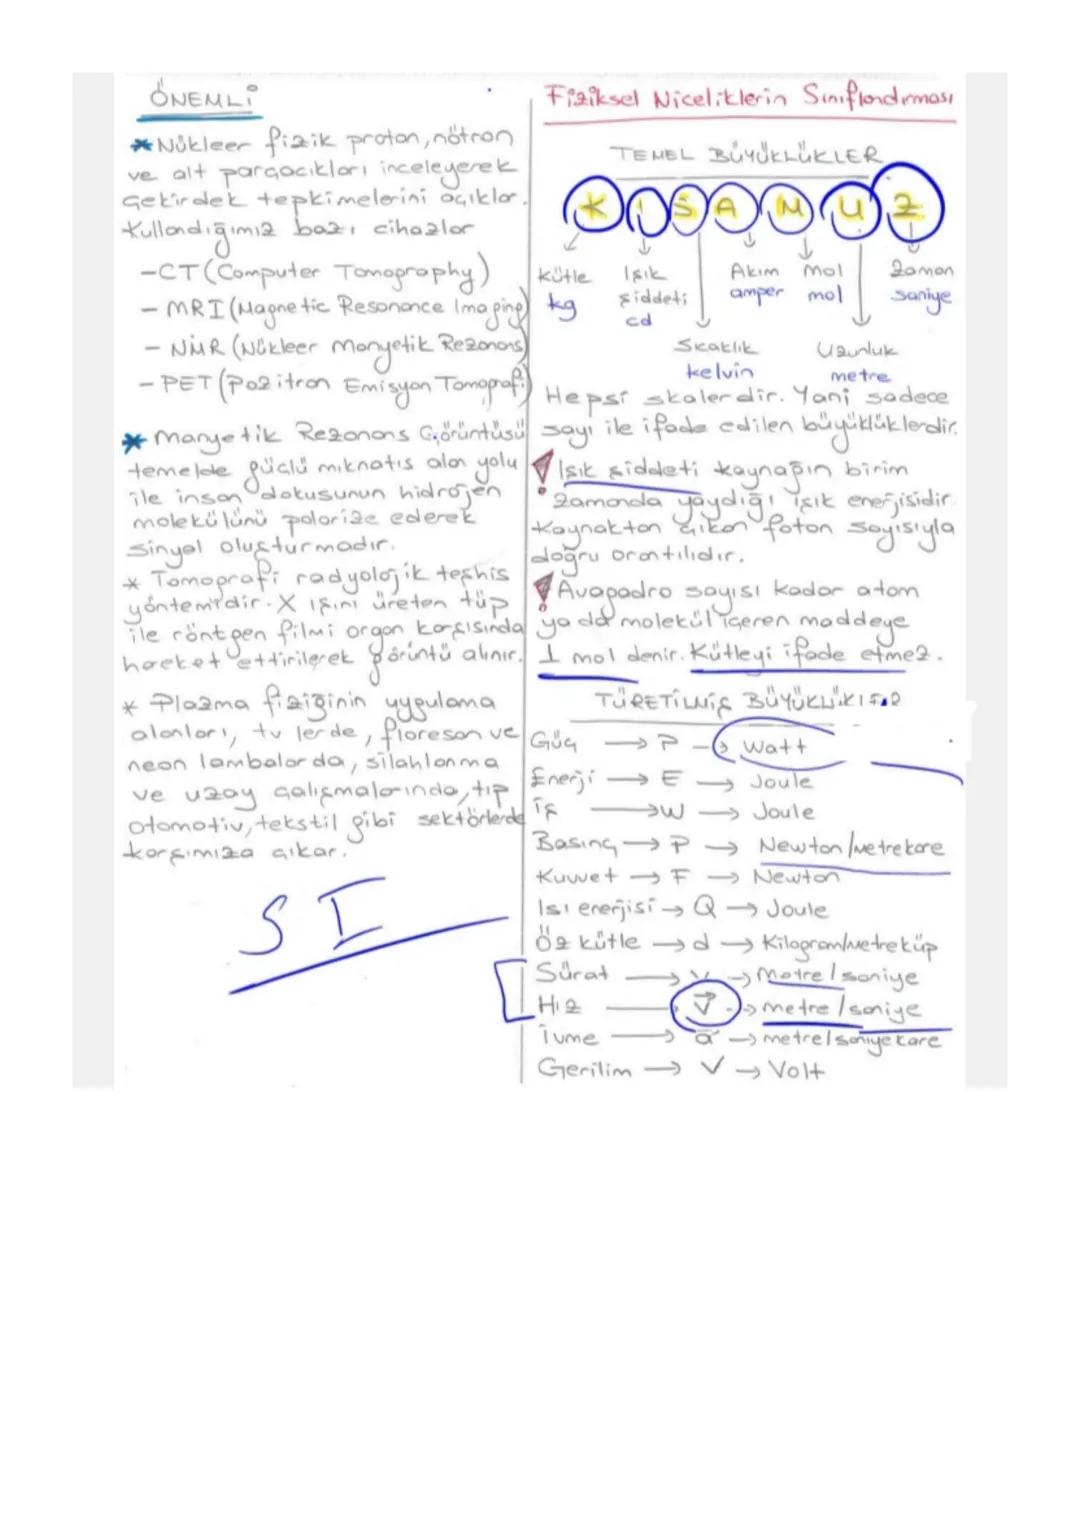 ÖNEMLİ
* Nükleer fizik proton, nötron
ve alt parçacıkları inceleyerek
Çekirdek tepkimelerini açıklar.
Kullandığımız bazı cihazlar
-CT (Computer Tomography)
- MRI (Magnetic Resonance Imaging)
- NMR (Nükleer Manyetik Rezonans)
- PET (Pozitron Emisyon Tomografi)
* Manyetik Rezonans Görüntüsü
temelde güçlü mıknatıs alan yolu
ile insan dokusunun hidrojen
molekülünü polarize ederek
sinyal oluşturmadır.
* Tomografi radyolojik teşhis
yöntemidir. X ışını üreten tüp
ile röntgen filmi organ karşısında
hareket ettirilerek görüntü alınır.
* Plazma fiziğinin uygulama
alanları, tv lerde, floresan ve
neon lambalarda, silahlanma
ve uzay çalışmalarında, tıp
otomotiv, tekstil gibi sektörlerde
karşımıza çıkar.
SI
Fiziksel Niceliklerin Sınıflandırması
TEMEL BÜYÜKLÜKLER
K I S A M U Z
Kütle Işık Akım Mol Zaman
kg şiddeti amper mol saniye
cd
Sıcaklık Uzunluk
kelvin metre
Hepsi skalerdir. Yani sadece
sayı ile ifade edilen büyüklüklerdir.
! Işık şiddeti kaynağın birim
zamanda yaydığı ışık enerjisidir.
Kaynaktan çıkan foton sayısıyla
doğru orantılıdır.
! Avagadro sayısı kadar atom
ya da molekül içeren maddeye
1 mol denir. Kütleyi ifade etmez.
TÜRETİLMİŞ BÜYÜKLÜKLER
Güç → P → Watt
Enerji → E → Joule
İş → W → Joule
Basınç → P → Newton/metrekare
Kuvvet → F → Newton
Isı enerjisi → Q → Joule
Öz kütle → d → Kilogram/metreküp
Sürat → V → Metre/saniye
Hız → V⃗ → metre/saniye
İvme → a⃗ → metre/saniyekare
Gerilim → V → Volt